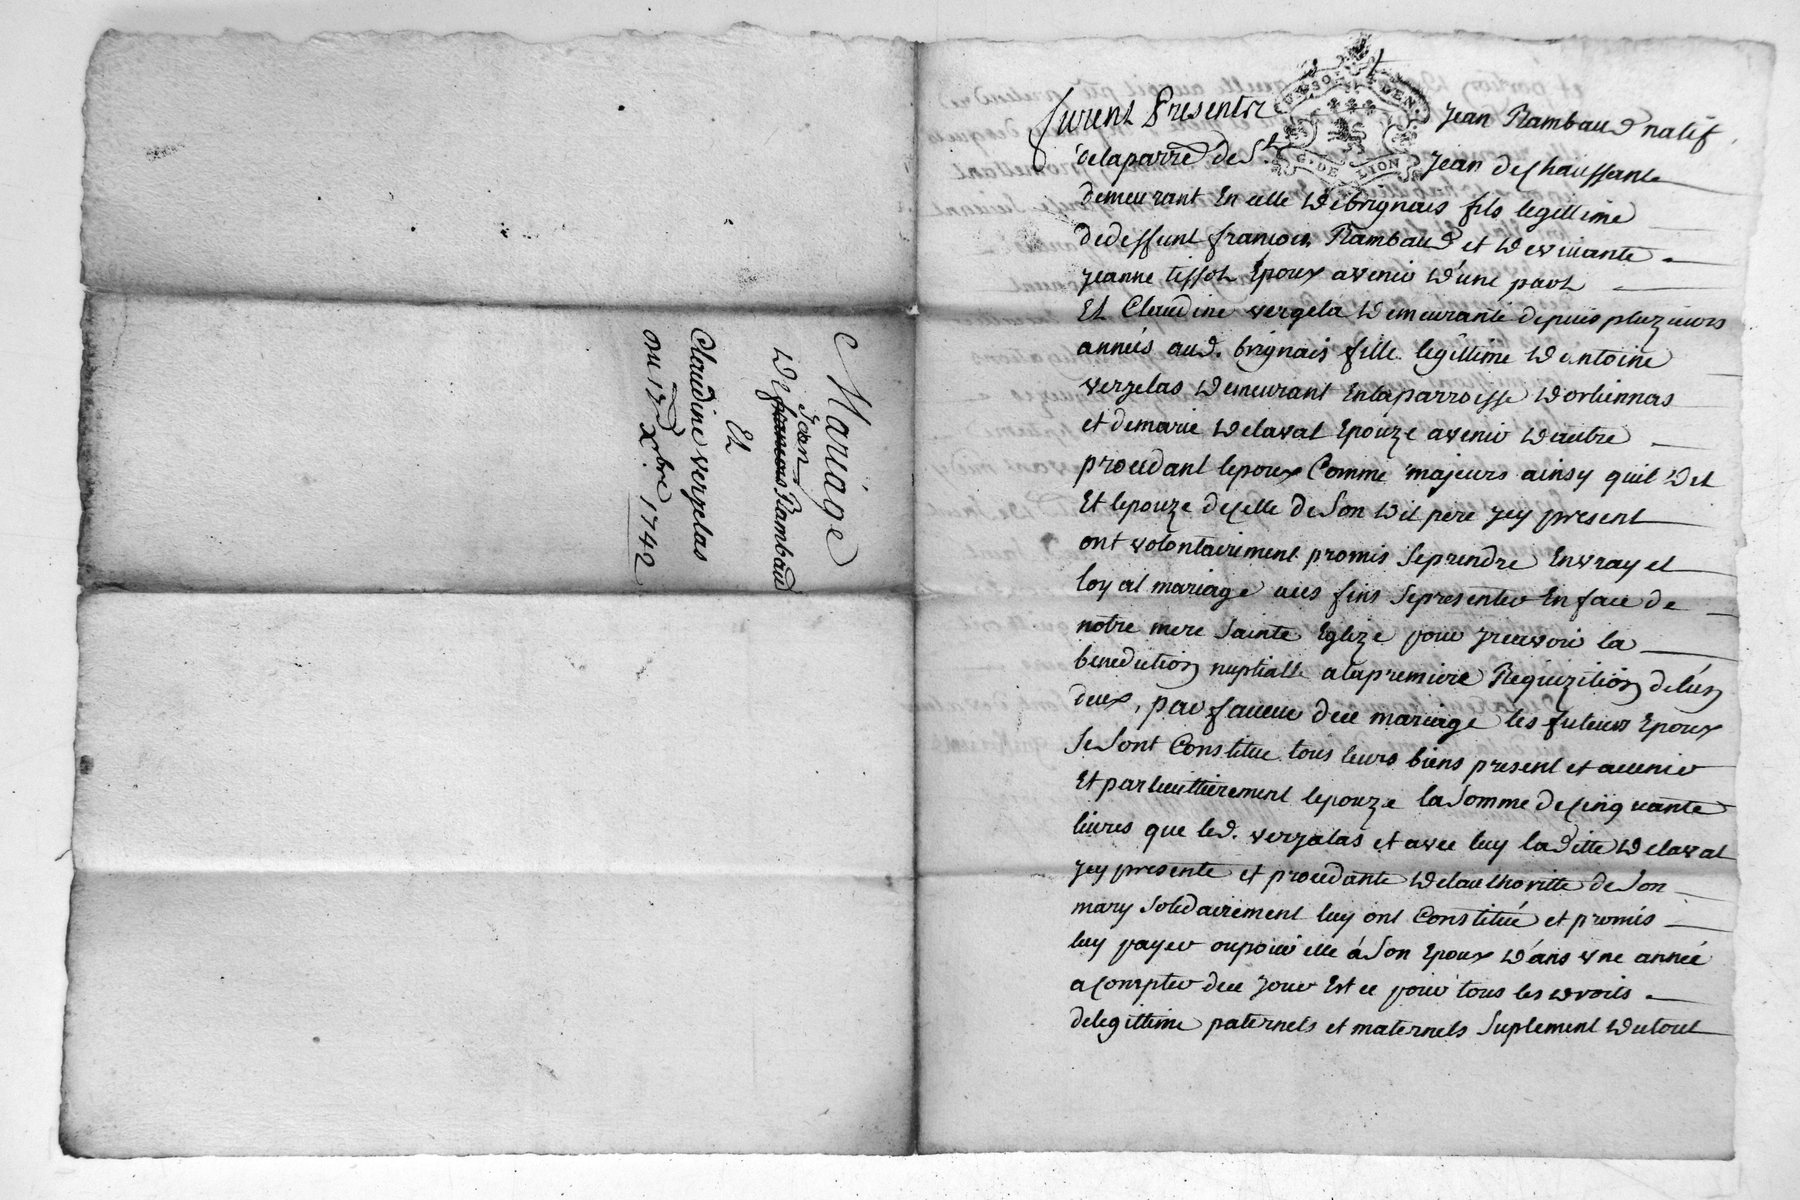 Mariage
De francois Rambaud
Jean
Et
Claudine verzelas
xbre 1742
G. DE LION
furent Presents Jean Rambaud natif
delaparre de St Jean deChaussant
demeurant En celle De brignais fils legittime
dedeffunt francois Rambaud et De vivante
Jeanne tissot Epoux avenir D'une part
Et Claudine vergela Demeurante depuis pluzieurs
années aud. brignais fille legittime D'Antoine
verzelas Demeurant Enlaparroisse Dorliennas
et demarie Delaval Epouze avenir Dautre
procedant lepoux Comme majeurs ainsy quil Dit
Et lepouze decelle de Son Dit pere Jcy present
ont volontairement promis Seprendre Envray et
loyal mariage aces fins Sepresenter En face de
notre mere Sainte Eglize pour y recevoir la
benediction nuptialle alapremiere Requizition delun
deux, par faveur dece mariage les futeurs Epoux
Se Sont Constitue tous leurs biens present et avenir
Et particullierement lepouze laSomme deCinquante
livres que led. verzalas et avec luy laditte Delaval
Jcy presente et procedante Delauthoritte de Son
mary Solidairement luy ont Constitué et promis
luy payer oupour elle á Son Epoux D'ans vne année
aCompter dece Jour Et ce pour tous les Droits
delegittime paternels et maternels Suplement Dutout